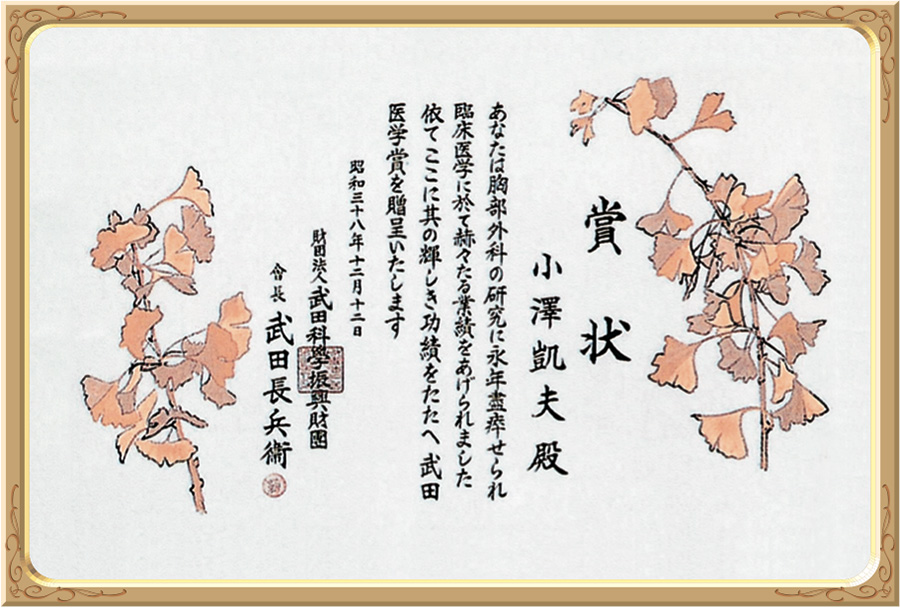 賞状
小澤凱夫殿
あなたは胸部外科の研究に永年盡瘁せられ
臨床医学に於て赫々たる業績をあげられました
依てここに其の輝しき功績をたたへ武田
医学賞を贈呈いたします
昭和三十八年十二月十二日
財団法人武田科學振興財團
会長武田長兵衞